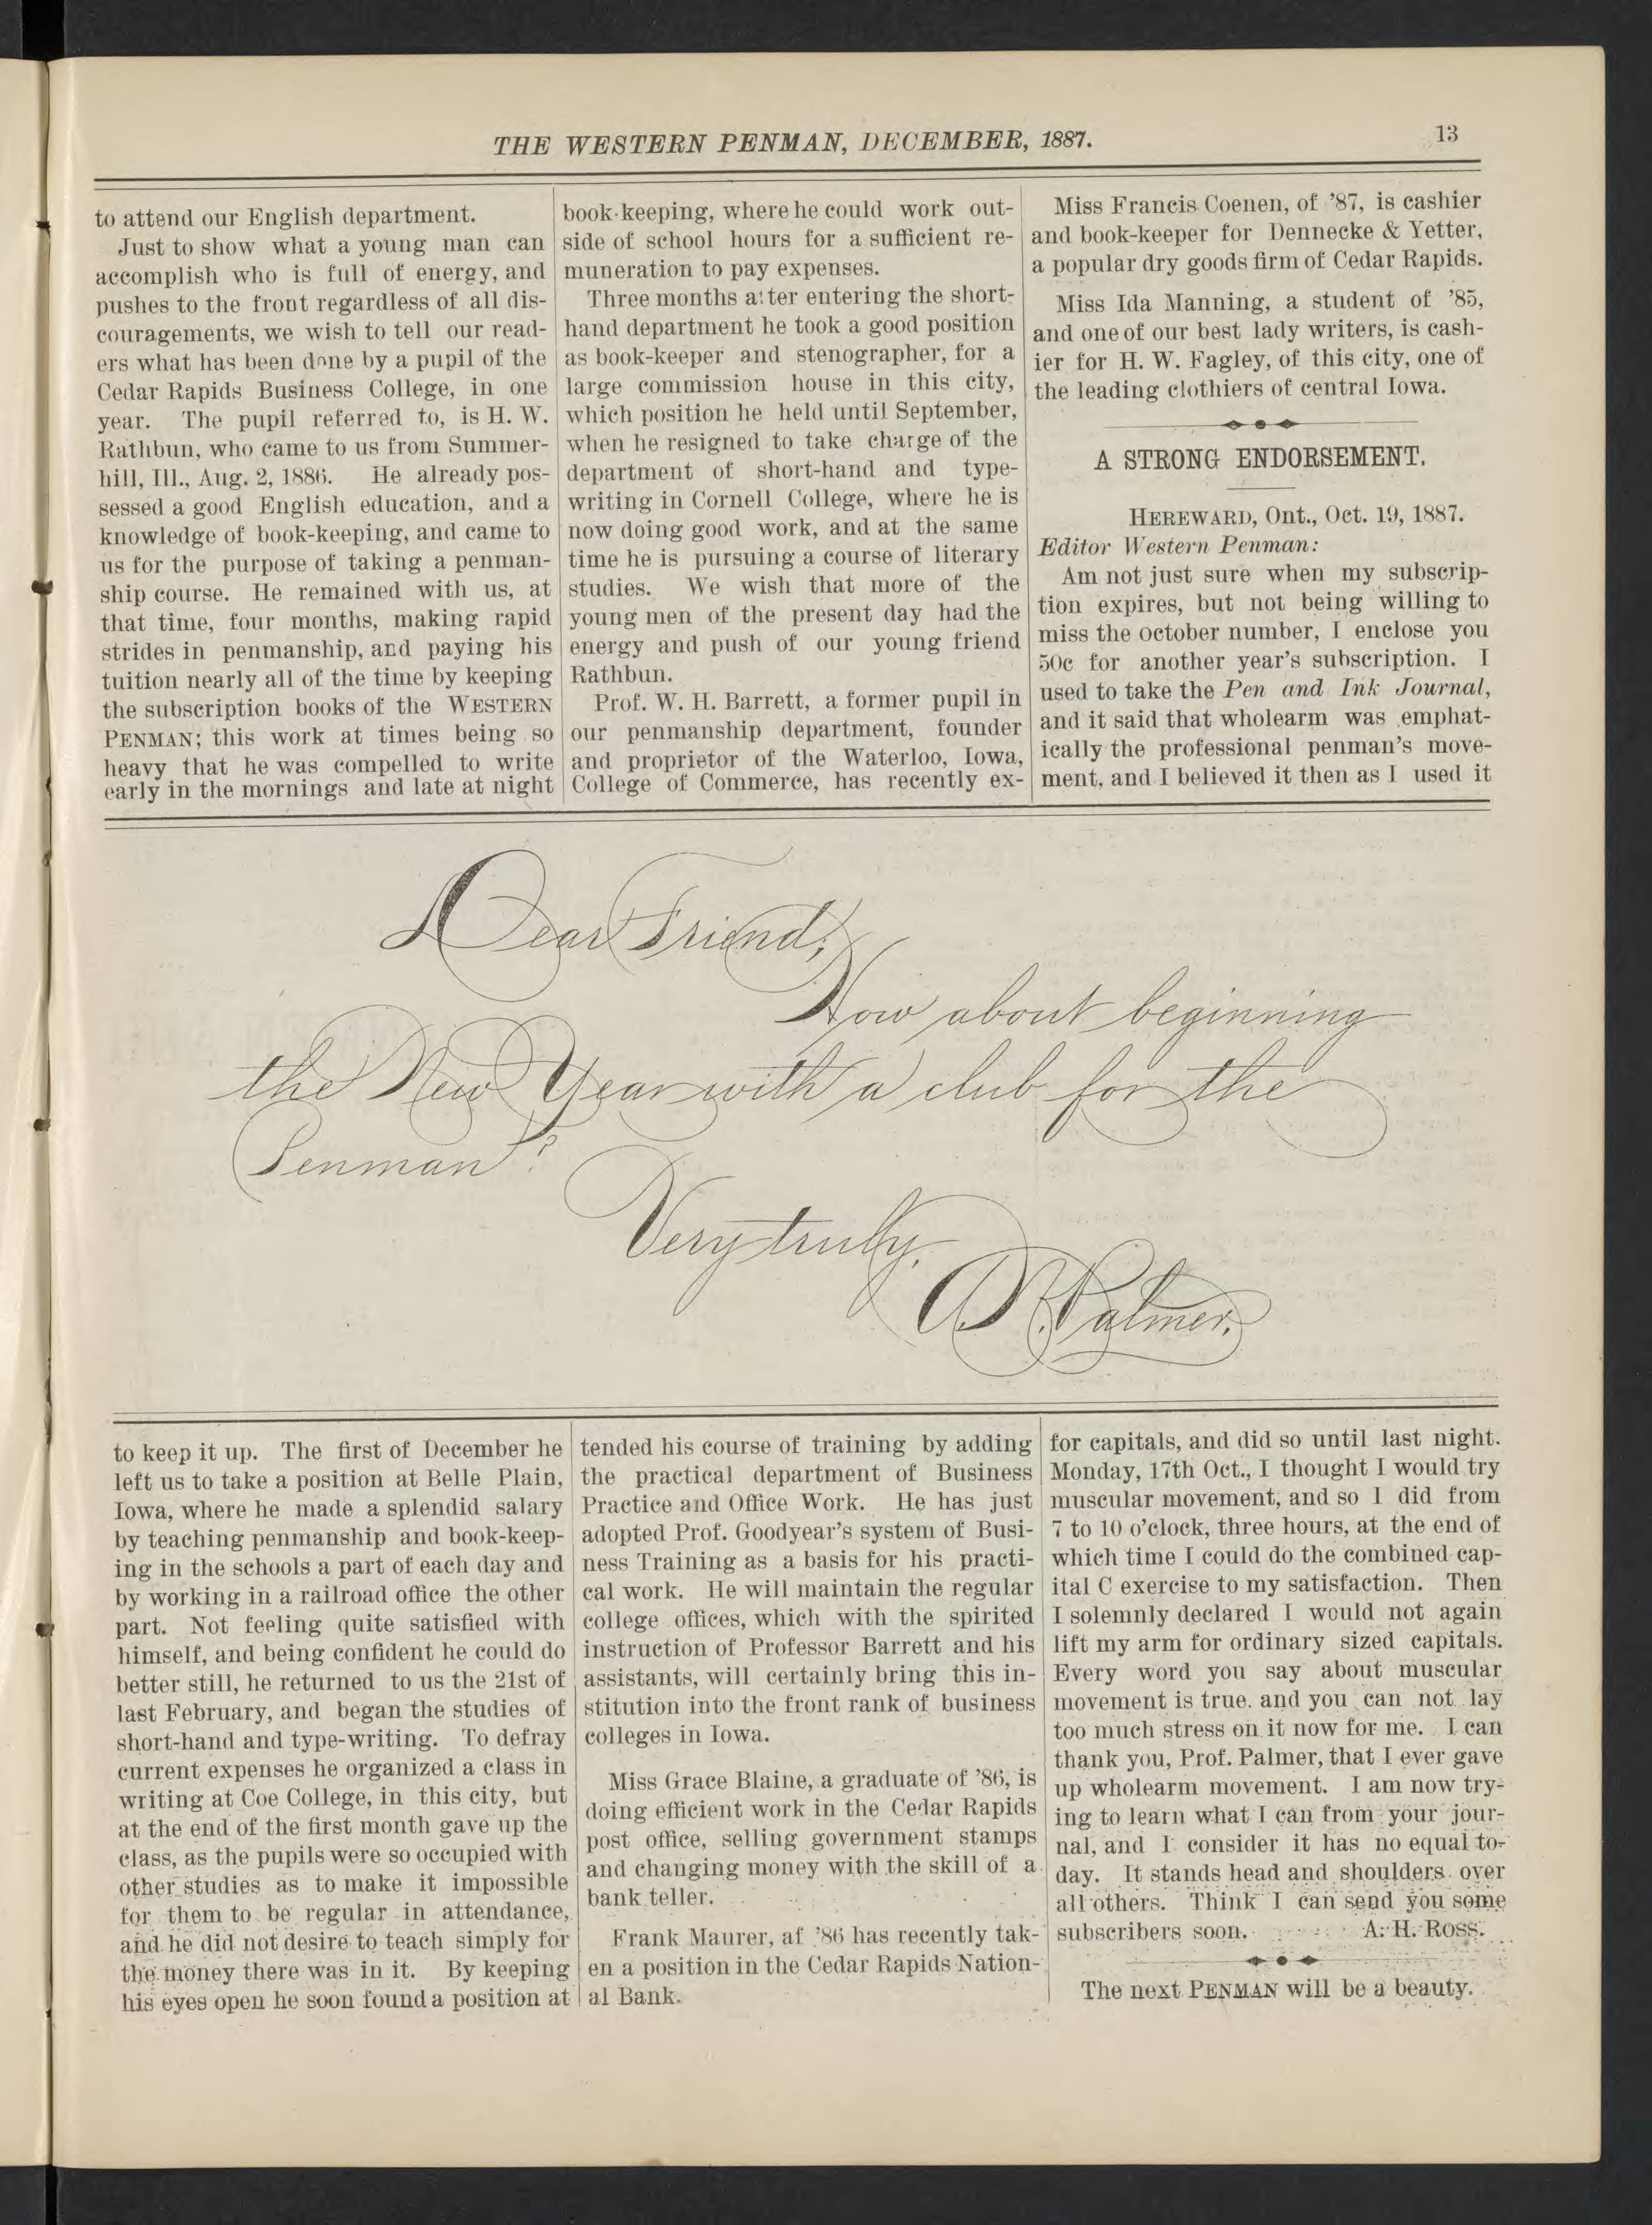 THE WESTERN PENMAN, DECEMBER, 1887.
13
to attend our English department.
Just to show what a young man can
accomplish who is full of energy, and
pushes to the front regardless of all dis-
couragements, we wish to tell our read-
ers what has been done by a pupil of the
Cedar Rapids Business College, in one
year. The pupil referred to, is H. W.
Rathbun, who came to us from Summer-
hill, Ill., Aug. 2, 1886. He already pos-
sessed a good English education, and a
knowledge of book-keeping, and came to
us for the purpose of taking a penman-
ship course. He remained with us, at
that time, four months, making rapid
strides in penmanship, and paying his
tuition nearly all of the time by keeping
the subscription books of the WESTERN
PENMAN; this work at times being so
heavy that he was compelled to write
early in the mornings and late at night
to keep it up. The first of December he
left us to take a position at Belle Plain,
Iowa, where he made a splendid salary
by teaching penmanship and book-keep-
ing in the schools a part of each day and
by working in a railroad office the other
part. Not feeling quite satisfied with
himself, and being confident he could do
better still, he returned to us the 21st of
last February, and began the studies of
short-hand and type-writing. To defray
current expenses he organized a class in
writing at Coe College, in this city, but
at the end of the first month gave up the
class, as the pupils were so occupied with
other studies as to make it impossible
for them to be regular in attendance,
and he did not desire to teach simply for
the money there was in it. By keeping
his eyes open he soon found a position at
book-keeping, where he could work out-
side of school hours for a sufficient re-
muneration to pay expenses.
Three months after entering the short-
hand department he took a good position
as book-keeper and stenographer, for a
large commission house in this city,
which position he held until September,
when he resigned to take charge of the
department of short-hand and type-
writing in Cornell College, where he is
now doing good work, and at the same
time he is pursuing a course of literary
studies. We wish that more of the
young men of the present day had the
energy and push of our young friend
Rathbun.
Prof. W. H. Barrett, a former pupil in
our penmanship department, founder
and proprietor of the Waterloo, Iowa,
College of Commerce, has recently ex-
tended his course of training by adding
the practical department of Business
Practice and Office Work. He has just
adopted Prof. Goodyear's system of Busi-
ness Training as a basis for his practi-
cal work. He will maintain the regular
college offices, which with the spirited
instruction of Professor Barrett and his
assistants, will certainly bring this in-
stitution into the front rank of business
colleges in Iowa.
Miss Grace Blaine, a graduate of '86, is
doing efficient work in the Cedar Rapids
post office, selling government stamps
and changing money with the skill of a
bank teller.
Frank Maurer, af '86 has recently tak-
en a position in the Cedar Rapids Nation-
al Bank.
Miss Francis Coenen, of '87, is cashier
and book-keeper for Dennecke & Yetter,
a popular dry goods firm of Cedar Rapids.
Miss Ida Manning, a student of '85,
and one of our best lady writers, is cash-
ier for H. W. Fagley, of this city, one of
the leading clothiers of central Iowa.
A STRONG ENDORSEMENT.
HEREWARD, Ont., Oct. 19, 1887.
Editor Western Penman:
Am not just sure when my subscrip-
tion expires, but not being willing to
miss the October number, I enclose you
50c for another year's subscription. I
used to take the Pen and Ink Journal,
and it said that wholearm was emphat-
ically the professional penman's move-
ment, and I believed it then as I used it
for capitals, and did so until last night.
Monday, 17th Oct., I thought I would try
muscular movement, and so I did from
7 to 10 o'clock, three hours, at the end of
which time I could do the combined cap-
ital C exercise to my satisfaction. Then
I solemnly declared I would not again
lift my arm for ordinary sized capitals.
Every word you say about muscular
movement is true. and you can not lay
too much stress on it now for me. I can
thank you, Prof. Palmer, that I ever gave
up wholearm movement. I am now try-
ing to learn what I can from your jour-
nal, and I consider it has no equal to-
day. It stands head and shoulders over
all others. Think I can send you some
subscribers soon. A. H. ROSS.
The next PENMAN will be a beauty.
Dear Friend;
How about beginning
the New Year with a club for the
Penman?
Very truly,
A. N. Palmer.